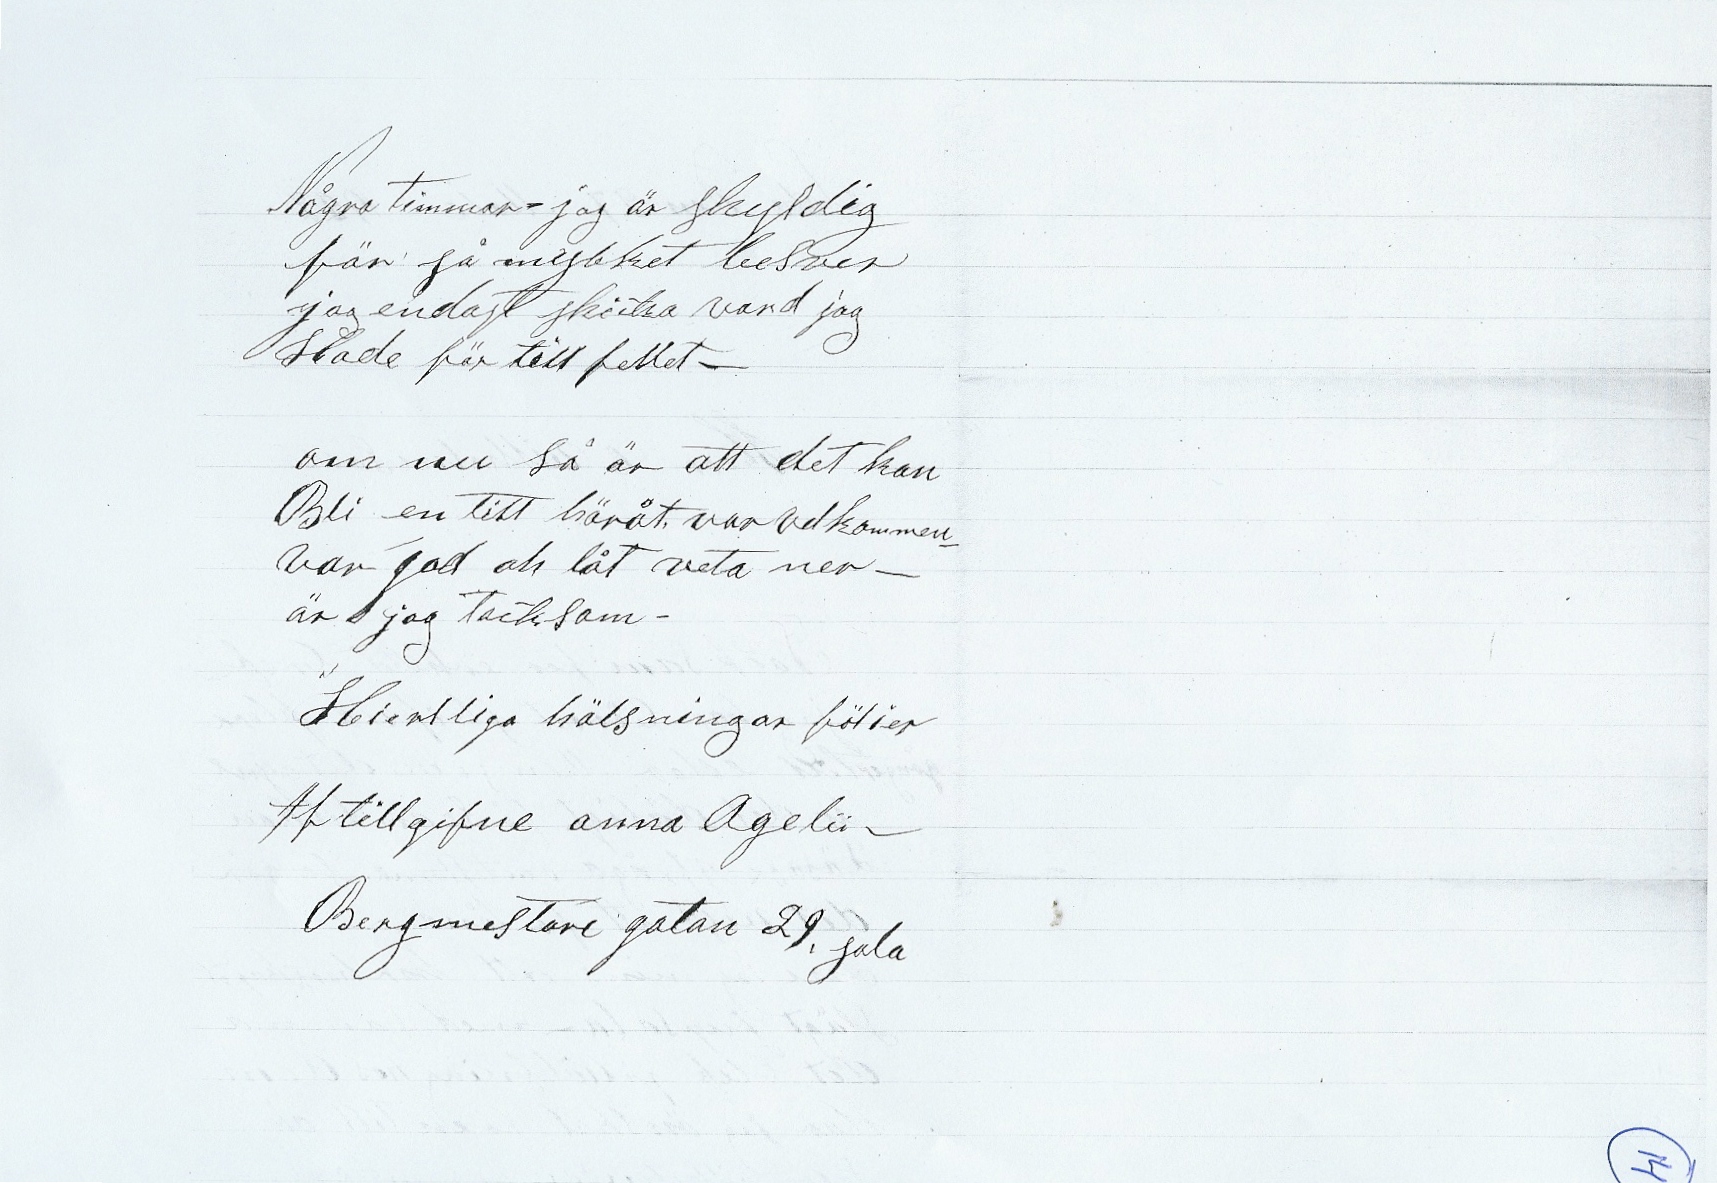 Några timmar - jag är skyldig
för så mycket besver
jag endast skicka vard jag
Hade för till fellet —
om nu så är att det kan
Bli en titt häråt, var velkommen
var god ok låt veta ner —
är jag tacksam -
Hiertliga hälsningar fölier
Af tillgifne anna Agelii —
Bergmestare gatan 29, sala
14